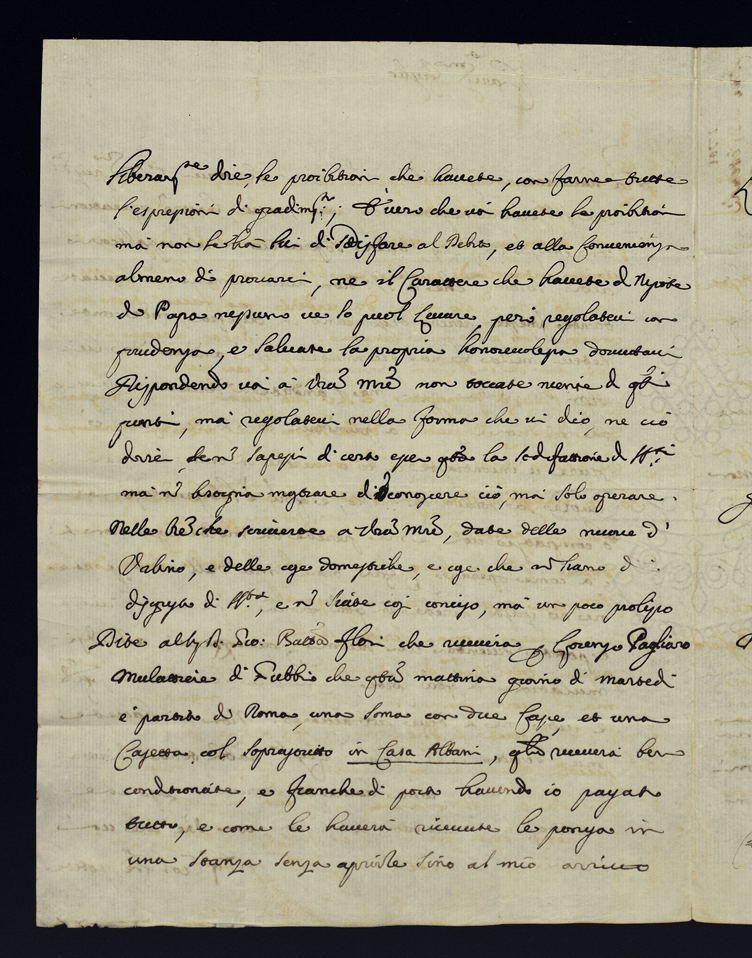 liberam.te dire, le proibitioni che havete, con farne tutte
l'espressioni di gradim.to; È vero che voi havete le proibitioni
ma non di sodisfare al Debito, et alla Convenienza
almeno di provarci, ne il Carattere che havete di Nipote
di Papa nessuno ve lo puol levare, però regolatevi con
prudenza, e salvate la propria honorevolezza dovutavi
Rispondendo voi à V'ra M're non toccate niente di q'sti
punti, mà regolatevi nella forma che vi dico, ne ciò
direi, se n'on sapessi di certo esser q'sta la sodisfattione di
ma n'on bisogna mostrare di conoscere ciò, ma solo operare.
Nelle l're che scriverete a V'ra M're, date delle nuove d'
Urbino, e delle cose domestiche, e cose che n'on siano di
disgusto di, e n'on siate così conciso, mà un poco prolisso
Dite al Sig.r Gio: Batta Flori che riceverà p Lorenzo Pagliaro
Mulattiere di Gubbio che q'sta mattina giorno di martedì
è partito di Roma, una soma con due Casse, et una
Cassetta, col soprascritto in Casa Albani, q'li riceverà ben
conditionate, e franche di porto havendo io pagato
tutto, e come le haverà ricevute le ponga in
una stanza senza aprirle sino al mio arrivo